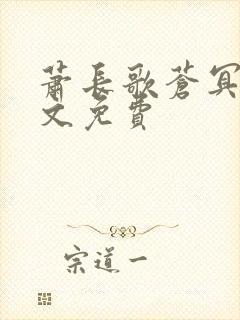 萧长歌苍冥
文免费
宗道一